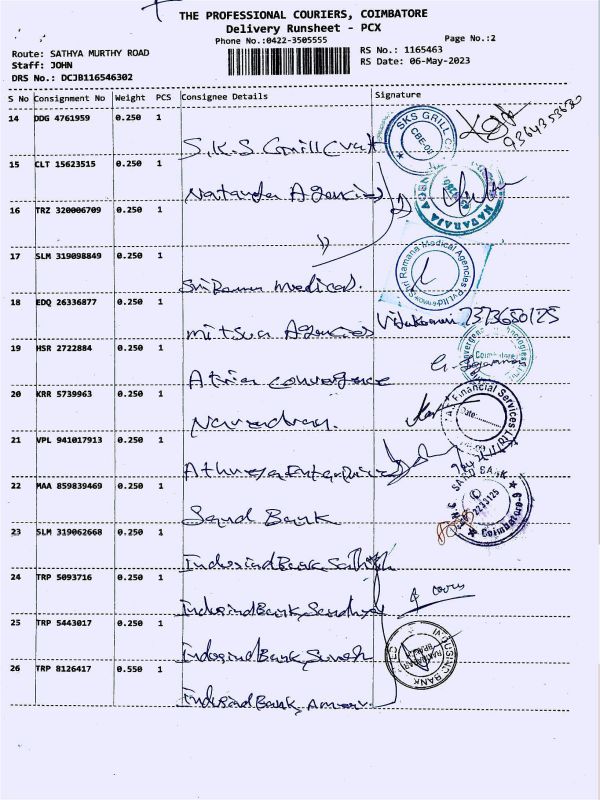 THE PROFESSIONAL COURIERS, COIMBATORE
Delivery Runsheet - PCX
Phone No.:0422-3505555
Page No.:2
Route: SATHYA MURTHY ROAD
RS No.: 1165463
Staff: JOHN
RS Date: 06-May-2023
DRS No.: DCJB116546302
S No Consignment No Weight PCS Consignee Details Signature
14 DDG 4761959 0.250 1
S.K.S Grill
SKS GRILL
CBE-
15 CLT 15623515 0.250 1
Nataraja Agencies
NADARAJA
16 TRZ 320006709 0.250 1
17 SLM 319098849 0.250 1
Sri Ramana Medical.
Shri Ramana Medical Agencies Pvt Ltd
18 EDQ 26336877 0.250 1
mitsua Agencies
7373680125
19 HSR 2722884 0.250 1
Atria convergence
Convergence Technologies
Coimbatore
20 KRR 5739963 0.250 1
Narendran.
Financial Services Ltd
Date:
21 VPL 941017913 0.250 1
Enterprises
22 MAA 859839469 0.250 1
Sand Bank
BANK
Coimbatore-9
23 SLM 319062668 0.250 1
IndusindBank Sathya
24 TRP 5093716 0.250 1
IndusindBank, Sandhya
4 covers
25 TRP 5443017 0.250 1
IndusindBank, Suresh
INDUSIND BANK
26 TRP 8126417 0.550 1
IndusindBank,